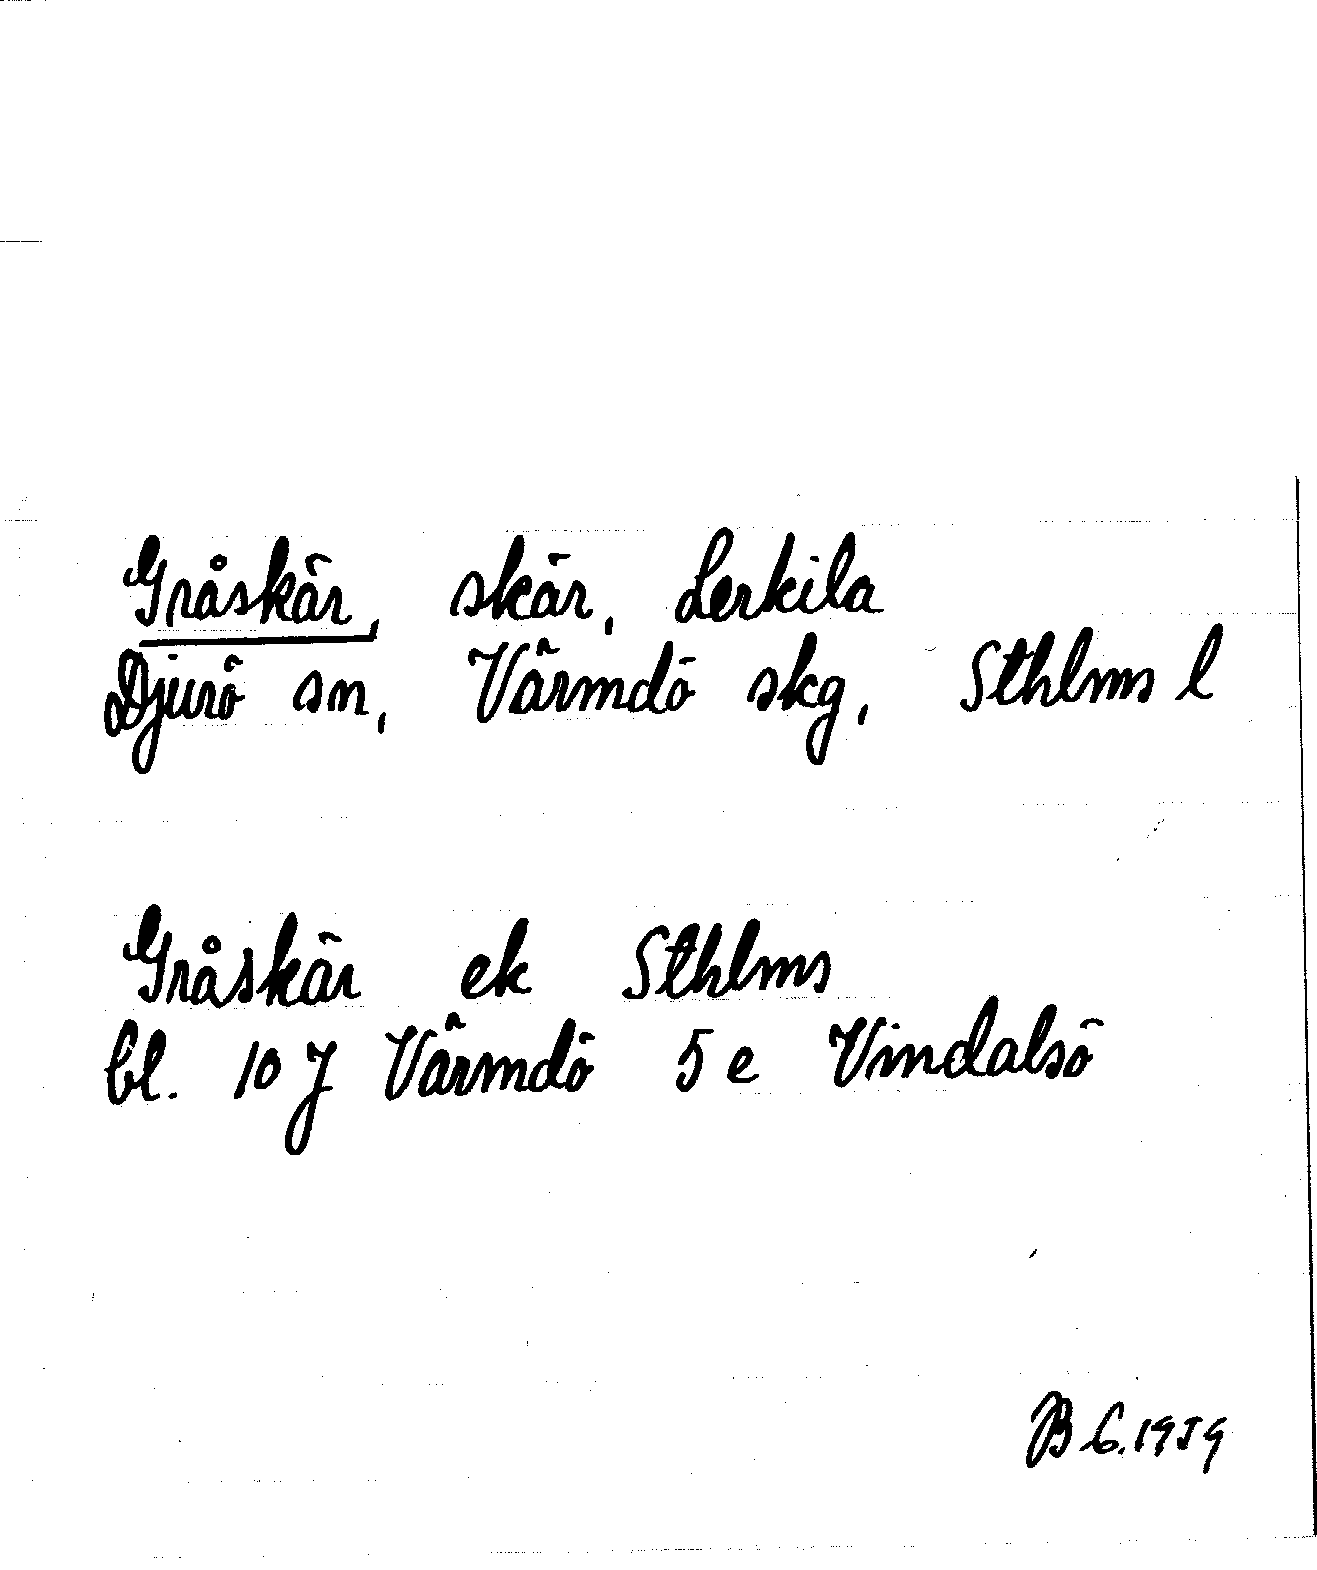 Gråskär, skär, Lerkila
Djurö sn, Värmdö skg, Sthlms l
Gråskär ek Sthlms
bl. 10 J Värmdö 5 e Vindalsö
B 6.1959